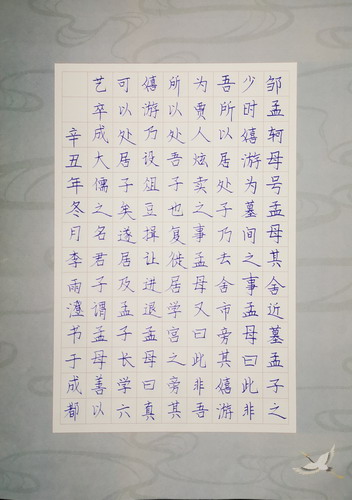 邹孟轲母号孟母其舍近墓孟子之
少时嬉游为墓间之事孟母曰此非
吾所以居处子乃去舍市旁其嬉游
为贾人炫卖之事孟母又曰此非吾
所以处吾子也复徙居学宫之旁其
嬉游乃设俎豆揖让进退孟母曰真
可以处居子矣遂居及孟子长学六
艺卒成大儒之名君子谓孟母善以
辛丑年冬月李雨书于成都